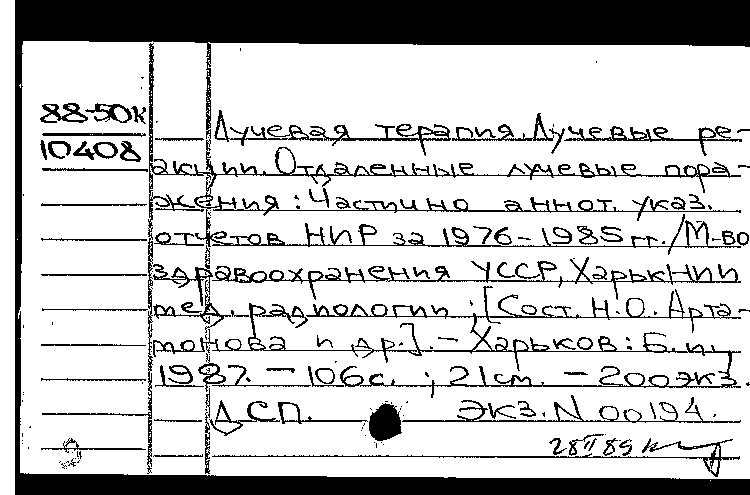 88-50к
10408
Лучевая терапия. Лучевые ре-
акции. Отдаленные лучевые пора-
жения: Частично аннот. указ.
отчетов НИР за 1976-1985 гг. / М-во
здравоохранения УССР, ХарькНИИ
мед. радиологии; [Сост. Н.О. Арта-
монова и др.]. - Харьков: Б.и.,
1987. - 106 с. ; 21 см. - 200 экз.
ДСП. Экз. N 00194.
28 II 89
9